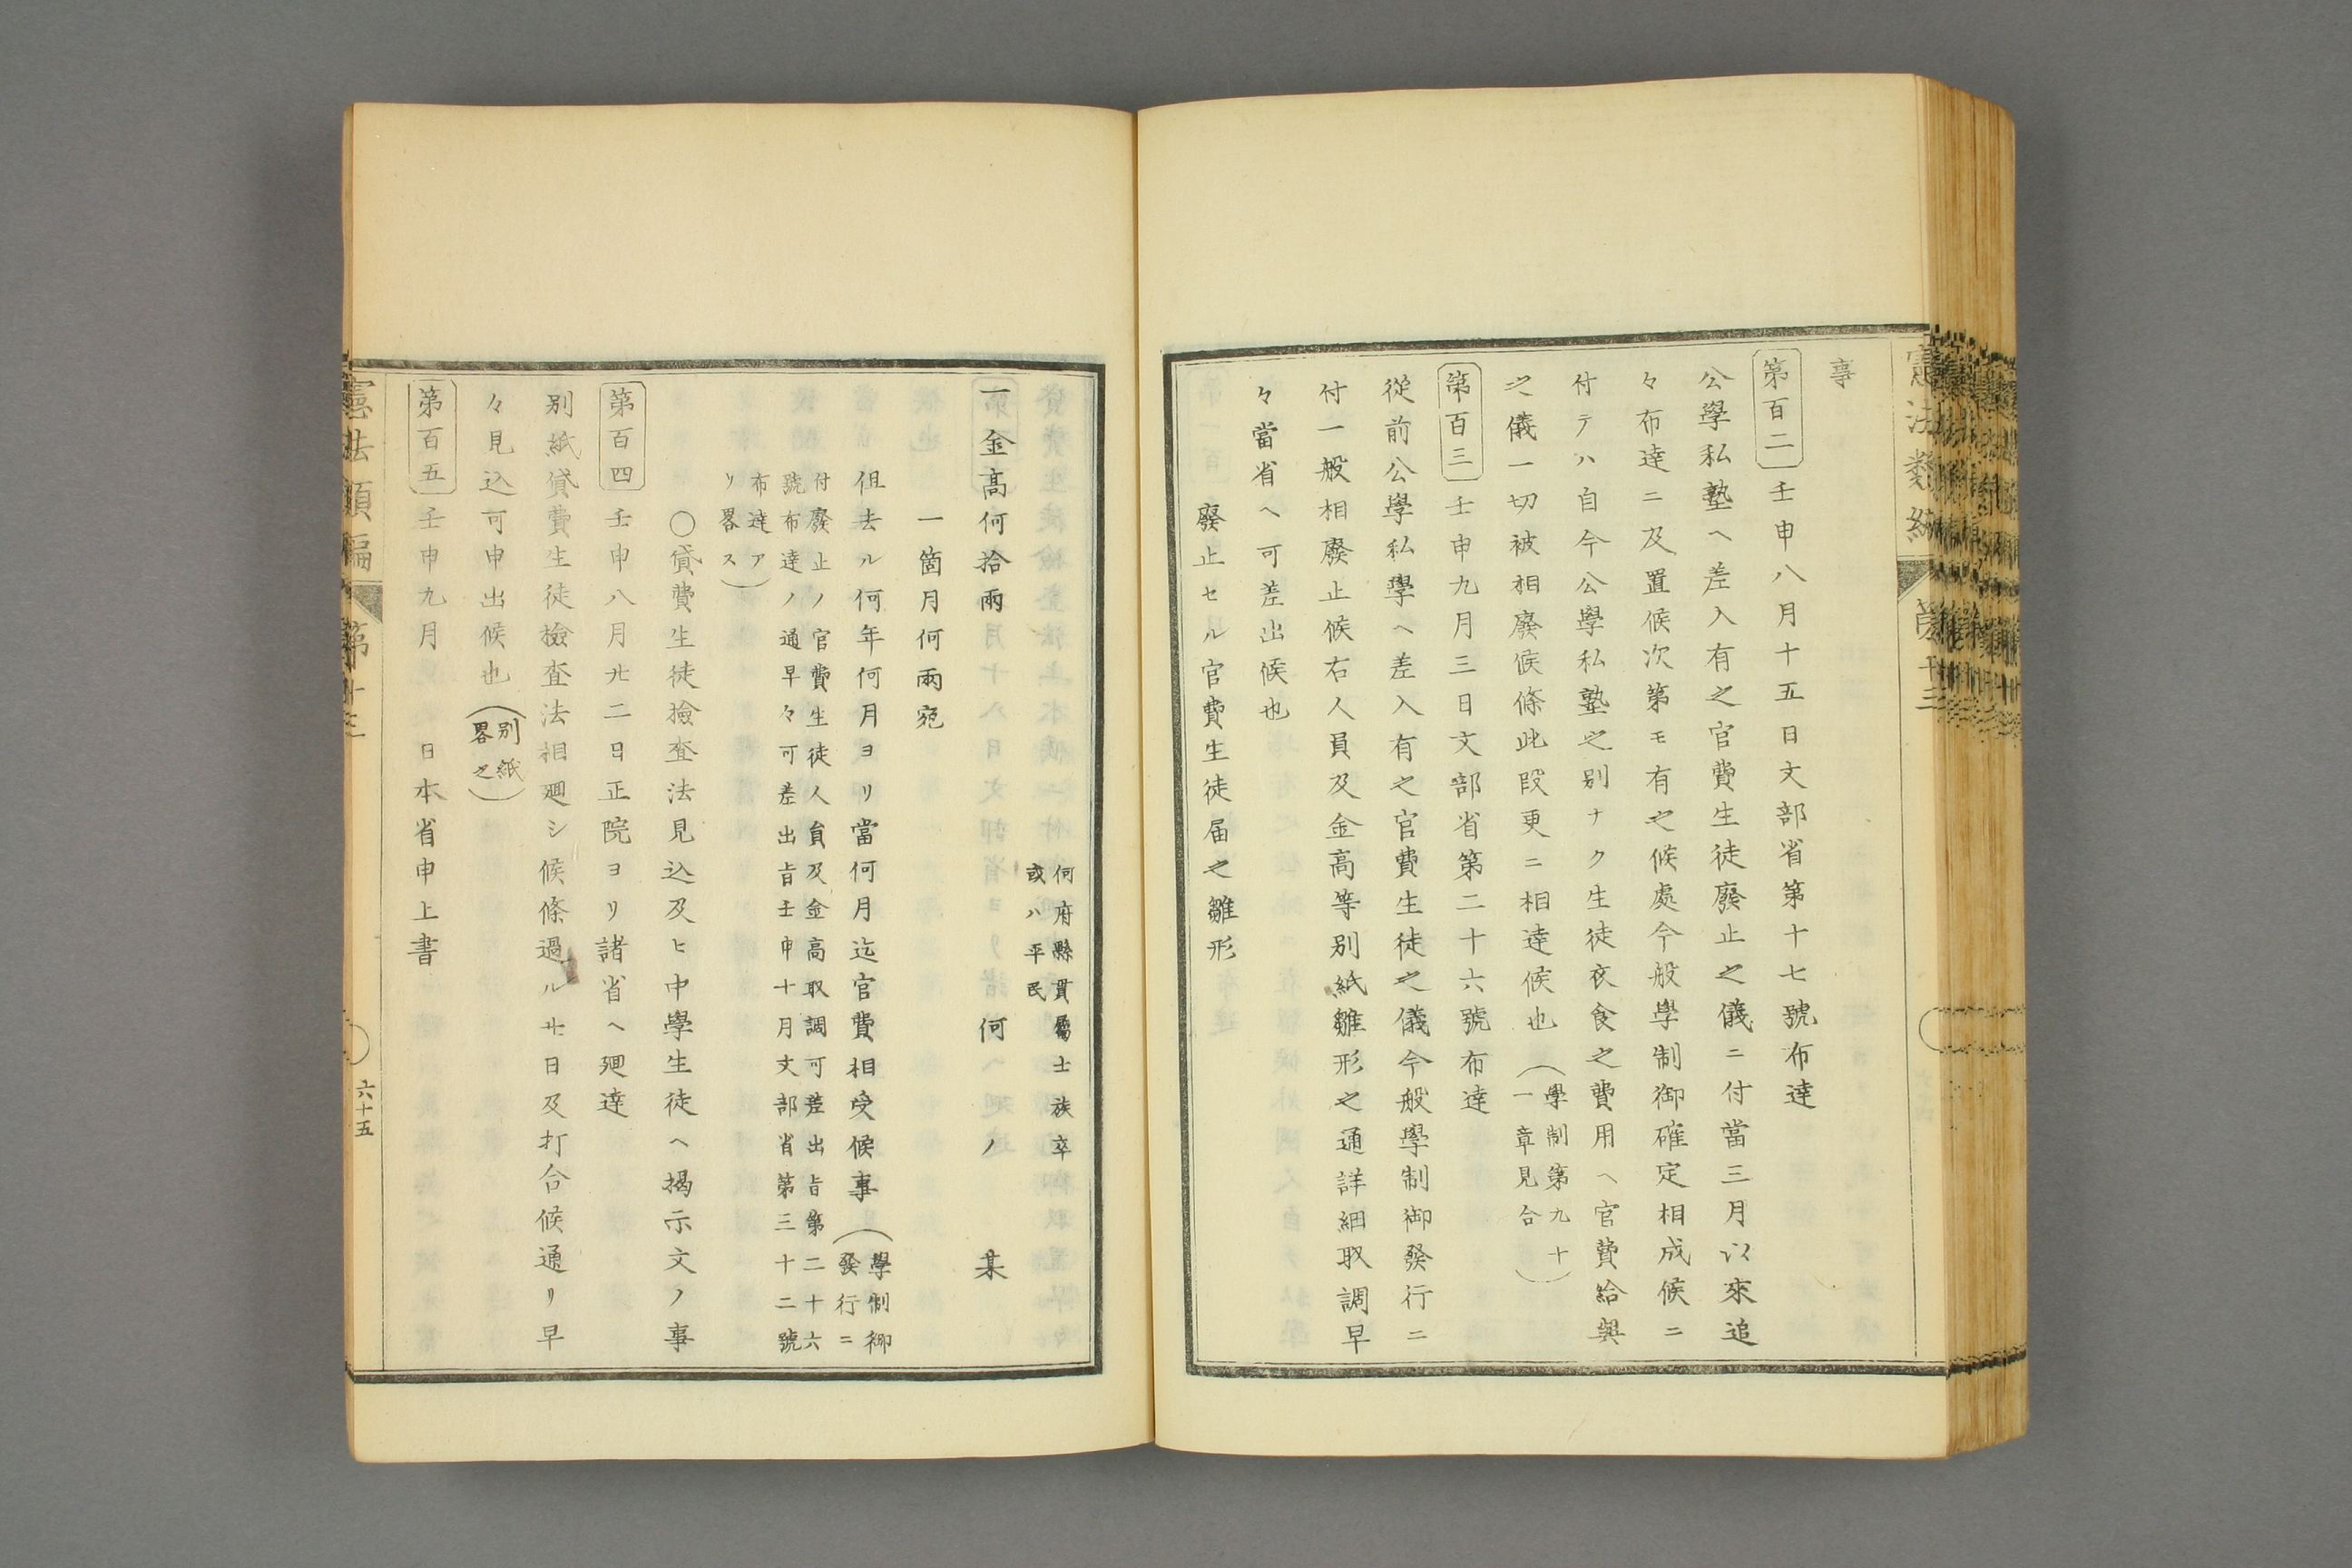 事
第百二 壬申八月十五日文部省第十七號布達
公學私塾ヘ差入有之官費生徒廢止之儀ニ付當三月以來追
々布達ニ及置候次第モ有之候處今般學制御確定相成候ニ
付テハ自今公學私塾之別ナク生徒衣食之費用ヘ官費給與
之儀一切被相廢候條此段更ニ相達候也（學制第九十一章見合）
第百三 壬申九月三日文部省第二十六號布達
從前公學私學ヘ差入有之官費生徒之儀今般學制御發行ニ
付一般相廢止候右人員及金高等別紙雛形之通詳細取調早
々當省ヘ可差出候也
廢止セル官費生徒届之雛形
何府縣貫屬士族卒
或ハ平民
一金高何拾兩 何ノ某
一箇月何兩宛
但去ル何年何月ヨリ當何月迄官費相受候事（學制御發行ニ
付廢止ノ官費生徒人員及金高取調可差出旨第二十六
號布達ノ通早々可差出旨壬申十月文部省第三十二號
布達アリ畧ス）
○貸費生徒撿查法見込及ヒ中學生徒ヘ揭示文ノ事
第百四 壬申八月廿二日正院ヨリ諸省ヘ廻達
別紙貸費生徒檢查法相廻シ候條過ル廿日及打合候通リ早
々見込可申出候也（別紙畧之）
第百五 壬申九月 日本省申上書
憲法類編 第十三
六十五